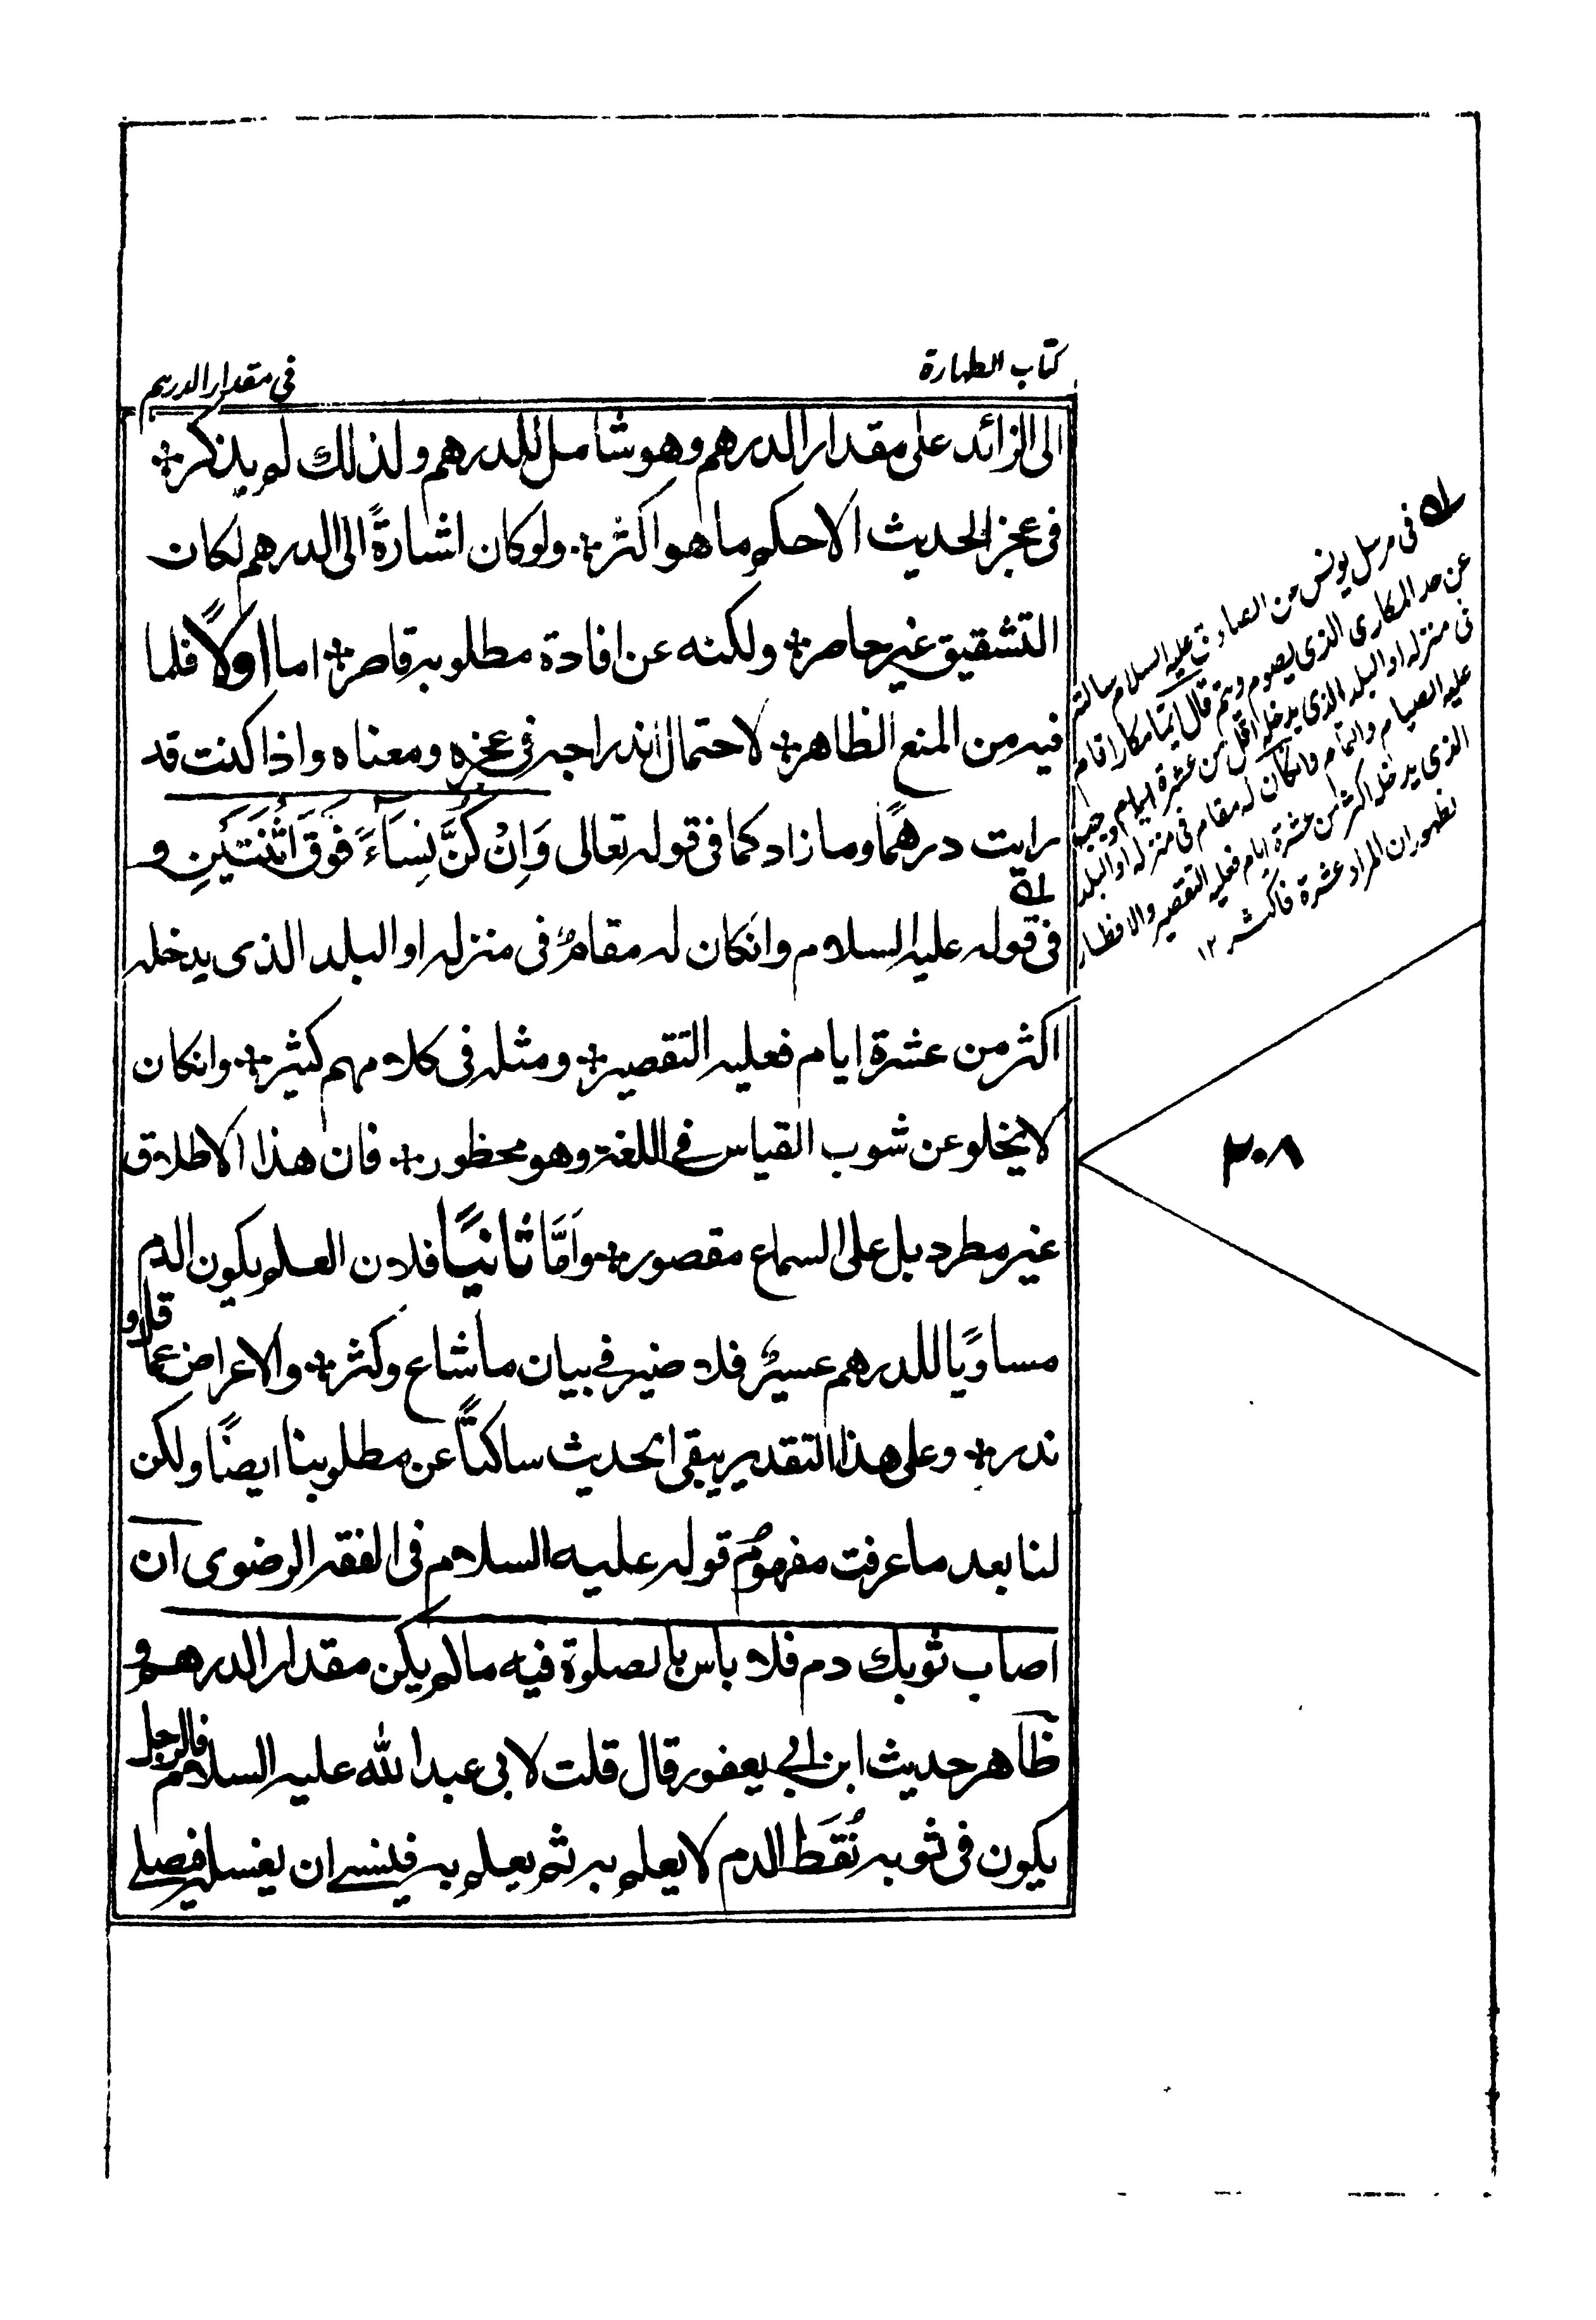 كتاب الطهارة
فى مقدار الدرهم
الى الزائد على مقدار الدرهم وهو شامل للدرهم ولذلك لم يذكر
فى عجز الحديث الا حكم ما هو اكثر ولو كان اشارةً الى الدرهم لكان
التشقيق غير حاصر ولكنه عن افادة مطلوبه قاصر اما اولاً فلما
فيه من المنع الظاهر لاحتمال اندراجه فى عجزه ومعناه واذا كنت قد
رايت درهمًا وما زاد كما فى قوله تعالى وَاِنْ كُنَّ نِسَاءً فَوْقَ اثْنَتَيْنِ و
فى قوله عليه السلام وانكان له مقامٌ فى منزله او البلد الذى يدخله
اكثر من عشرة ايام فعليه التقصير ومثله فى كلامهم كثير وانكان
لا يخلو عن شوب القياس فى اللغة وهو محظور فان هذا الاطلاق
غير مطرد بل على السماع مقصور وامَّا ثانيًا فلان العلم بكون الدم
مساويًا للدرهم عسيرٌ فلا ضير فى بيان ما شاع وكثر والاعراض عما قل و
ندر وعلى هذا التقدير يبقى الحديث ساكتًا عن مطلوبنا ايضًا ولكن
لنا بعد ما عرفت مفهومُ قوله عليه السلام فى الفقه الرضوى ان
اصاب ثوبك دم فلا باس بالصلوة فيه ما لم يكن مقدار الدرهم و
ظاهر حديث ابن ابى يعفور قال قلت لابى عبد الله عليه السلام فالرجل
يكون فى ثوبه نُقَط الدم لا يعلم به ثم يعلم به فينسى ان يغسله فيصلى
فى مرسل يونس من الصادق عليه السلام سالته
عن حد المكارى الذى يصوم ويتم قال ايما مكار اقام
فى منزله او البلد الذى يدخله اقل من عشرة ايام وجب
عليه الصيام والتمام وانكان له مقام فى منزله او البلد
الذى يدخله اكثر من عشرة ايام فعليه التقصير والافطار
لظهور ان المراد عشرة فاكثر ١٢
٣٠٨